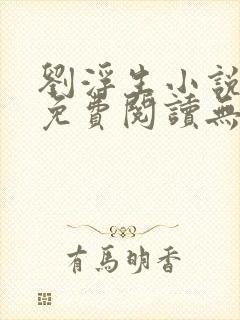 劉浮生小說
免費閱讀無
有馬明香